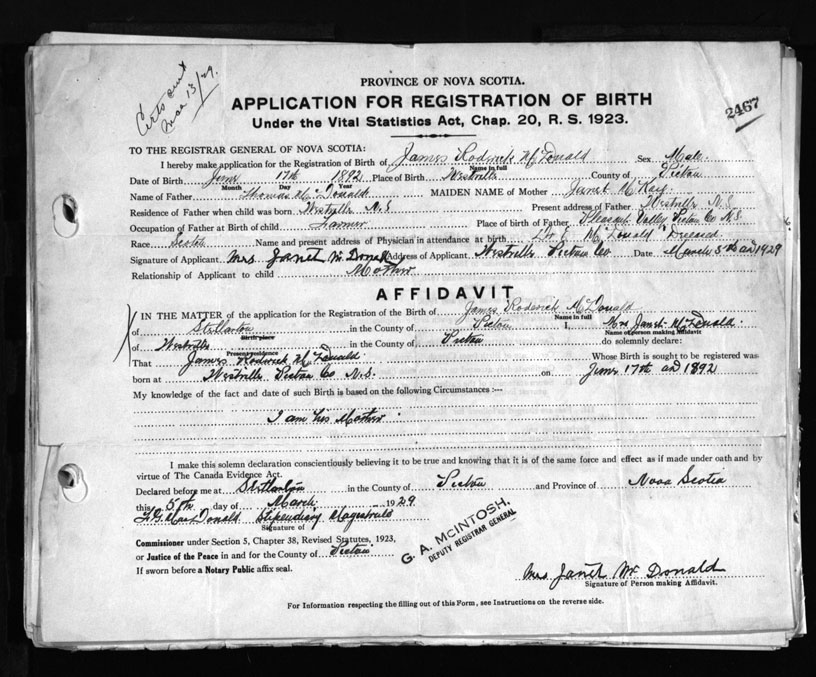 Certs out
Mar 13/29.
PROVINCE OF NOVA SCOTIA.
APPLICATION FOR REGISTRATION OF BIRTH
2467
Under the Vital Statistics Act, Chap. 20, R. S. 1923.
TO THE REGISTRAR GENERAL OF NOVA SCOTIA:
I hereby make application for the Registration of Birth of James Roderick McDonald Sex Male
Name in full
Date of Birth June 17th 1892 Place of Birth Westville County of Pictou
Month Day Year
Name of Father Thomas McDonald MAIDEN NAME of Mother Janet McKay
Residence of Father when child was born Westville N.S Present address of Father Westville N.S
Occupation of Father at Birth of child Farmer Place of birth of Father Pleasant Valley Pictou Co N.S.
Race Scotch Name and present address of Physician in attendance at birth Dr McDonald Deceased
Signature of Applicant Mrs Janet McDonald Address of Applicant Westville Pictou Co Date March 5th AD 1929
Relationship of Applicant to child Mother
AFFIDAVIT
IN THE MATTER of the application for the Registration of the Birth of James Roderick McDonald
Name in full
of Stellarton in the County of Pictou I, Mrs Janet McDonald
Birth place Name of person making Affidavit
of Westville in the County of Pictou do solemnly declare:
Present residence
That James Roderick McDonald Whose Birth is sought to be registered was
born at Westville Pictou Co N.S. on June 17th AD 1892
My knowledge of the fact and date of such Birth is based on the following Circumstances :—
I am his Mother
I make this solemn declaration conscientiously believing it to be true and knowing that it is of the same force and effect as if made under oath and by
virtue of The Canada Evidence Act.
Declared before me at Stellarton in the County of Pictou and Province of Nova Scotia
this 5th day of March 1929
MacDonald Stipendiary Magistrate
Signature of
Commissioner under Section 5, Chapter 38, Revised Statutes, 1923,
or Justice of the Peace in and for the County of Pictou
If sworn before a Notary Public affix seal.
G. A. McINTOSH,
DEPUTY REGISTRAR GENERAL
Mrs Janet McDonald
Signature of Person making Affidavit.
For Information respecting the filling out of this Form, see Instructions on the reverse side.